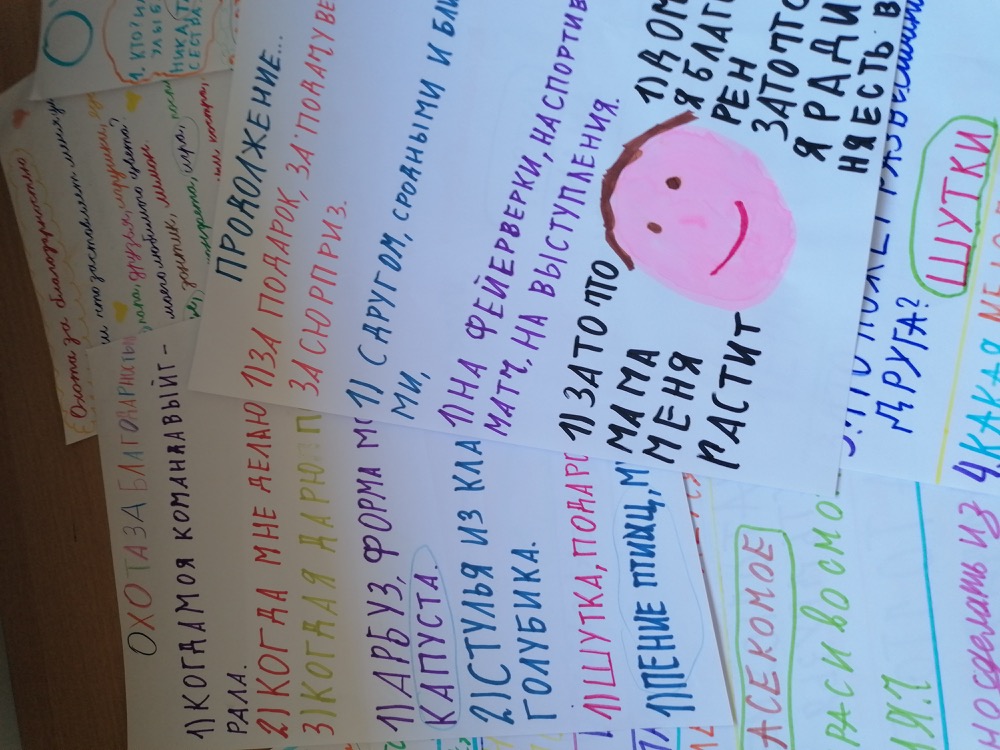 1. КТО И
НИКА, Т
СЕСТРА
Охота за благодарностью
что заставляет меня
папа, друзья, игрушки,
моего любимого цвета?
зонтик, лимон.
конфета, игра,
ОХОТА ЗА БЛАГОДАРНОСТЬЮ
1) КОГДА МОЯ КОМАНДА ВЫИГ-
РАЛА.
2) КОГДА МНЕ ДЕЛАЮ
3) КОГДА Я ДАРЮ П
1) АРБУЗ, ФОРМА М
КАПУСТА.
2) СТУЛЬЯ ИЗ КЛА
ГОЛУБИКА.
1) ШУТКА, ПОДАР
1) ПЕНИЕ ПТИЦ, М
ПРОДОЛЖЕНИЕ...
1) ЗА ПОДАРОК, ЗА ПОДАЧУ ВЕ
ЗА СЮРПРИЗ.
1) С ДРУГОМ, С РОДНЫМИ И БЛИ
МИ,
1) НА ФЕЙЕРВЕРКИ, НА СПОРТИВ
МАТЧ, НА ВЫСТУПЛЕНИЯ.
1) ЗА ТО ЧТО
МАМА
МЕНЯ
РАСТИТ
1) ДОМ
Я БЛАГ
РЕН
ЗА ТО ЧТО
Я РАДИ
НЯ ЕСТЬ В
ДРУГА?
ШУТКИ
4. КАКАЯ
АСЕКОМОЕ
РАСИВО СМО
но сделать из